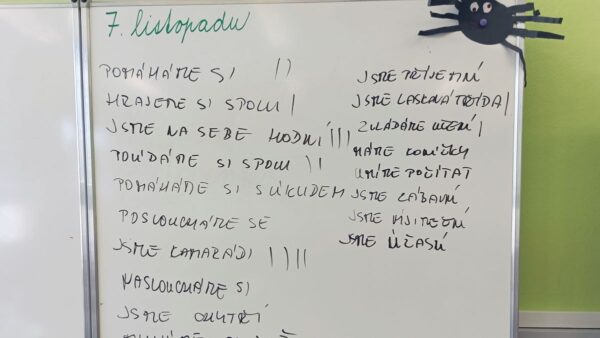 7. listopadu
POMÁHÁME SI ||
HRAJEME SI SPOLU |
JSME NA SEBE HODNÍ |||
POVÍDÁME SI SPOLU ||
POMÁHÁME SI S ÚKLIDEM
POSLOUCHÁME SE
JSME KAMARÁDI ||||
NASLOUCHÁME SI
JSME CHYTŘÍ
JSME PŘÍJEMNÍ
JSME LASKAVÁ TŘÍDA |
ZVLÁDÁME UČENÍ |
MÁME KONÍČKY
UMÍME POČÍTAT
JSME ZÁBAVNÍ
JSME
JSME ÚŽASNÍ